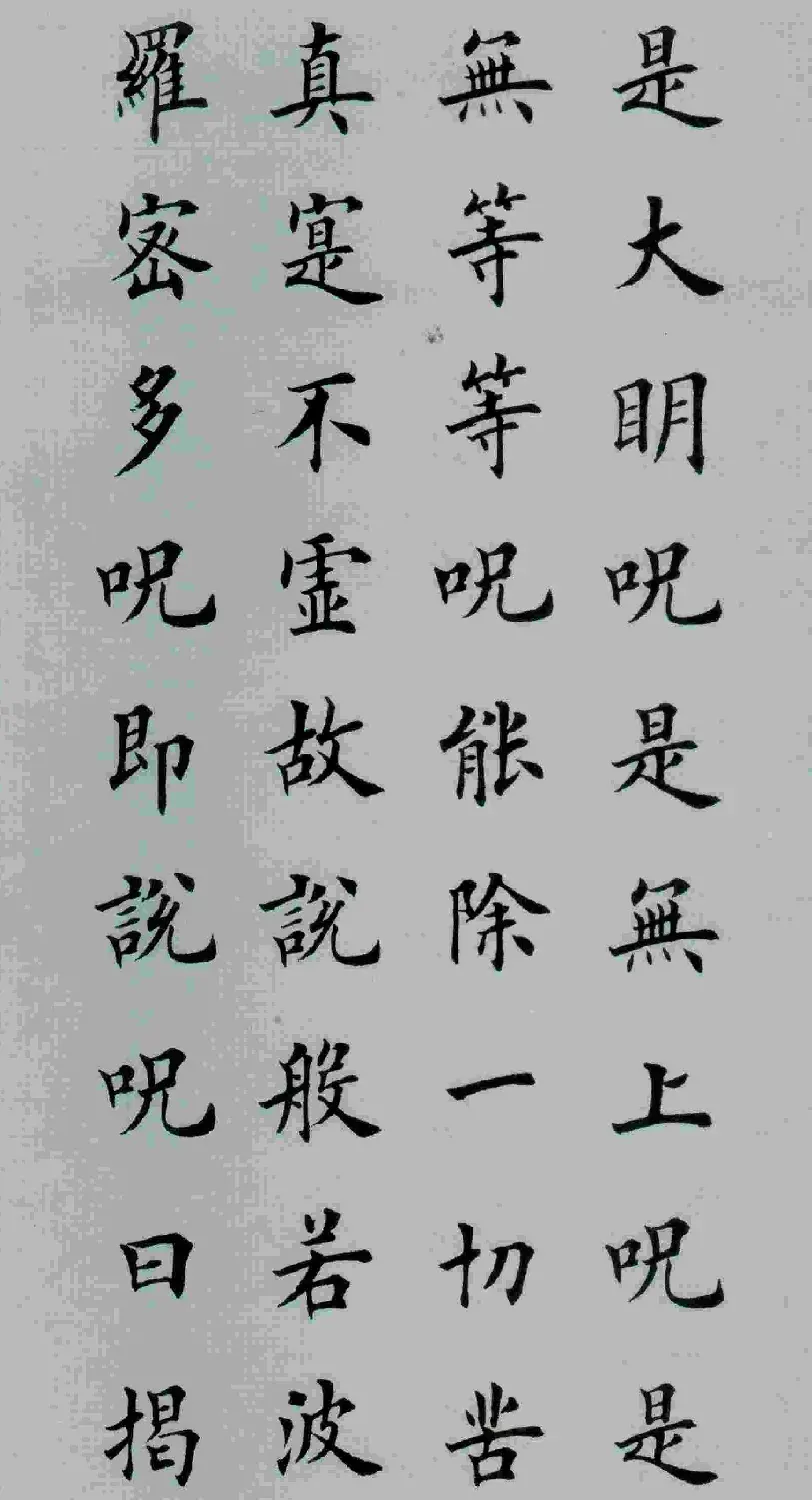 是大明呪是無上呪是
無等等呪能除一切苦
真寔不虛故說般若波
羅密多呪即說呪曰揭